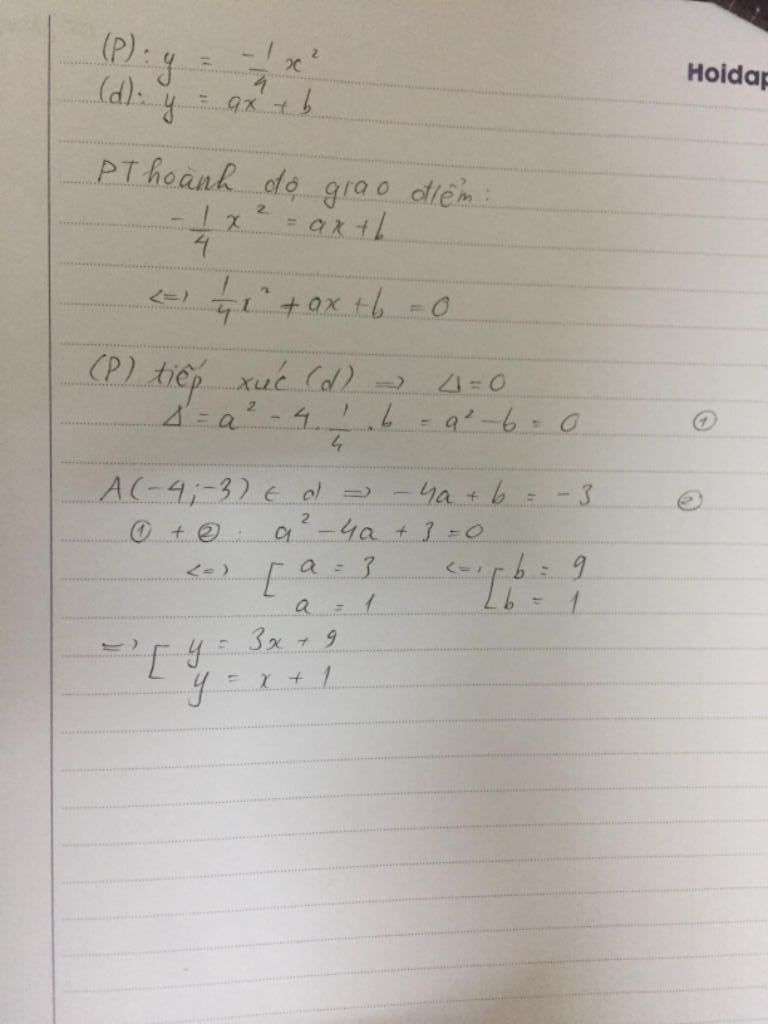 Hoidap
(P): y = -1/4 x²
(d): y = ax + b
PT hoành độ giao điểm:
-1/4 x² = ax + b
<=> 1/4 x² + ax + b = 0
(P) tiếp xúc (d) => Δ = 0
Δ = a² - 4. 1/4 .b = a² - b = 0 ①
A(-4;-3) ∈ d => -4a + b = -3 ②
① + ②: a² - 4a + 3 = 0
<=> [ a = 3 <=> [ b = 9
a = 1 b = 1
=> [ y = 3x + 9
y = x + 1